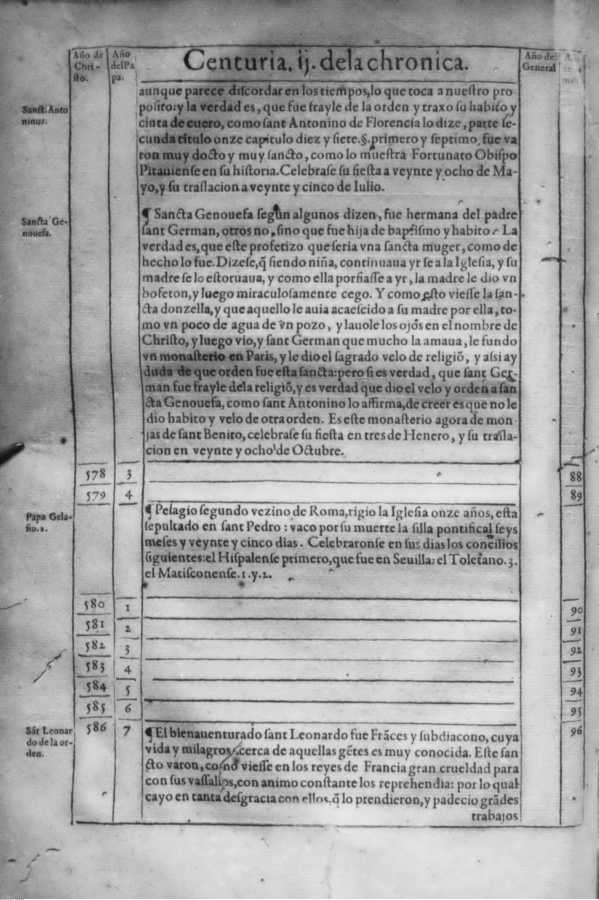 Año de Chri-
sto.
Año
del Pa
pa.
Centuria. ij. dela chronica.
Año del
General
aunque parece discordar en los tiempos, lo que toca a nuestro pro
posito: y la verdad es, que fue frayle de la orden y traxo su habito y
cinta de cuero, como sant Antonino de Florencia lo dize, parte se-
cunda titulo onze capitulo diez y siete. §. primero y septimo, fue va
ron muy docto y muy sancto, como lo muestra Fortunato Obispo
Pitauiense en su historia. Celebrase su fiesta a veynte y ocho de Ma-
yo, y su traslacion a veynte y cinco de Iulio.
Sanct. Anto
ninus.
¶ Sancta Genouefa segun algunos dizen, fue hermana del padre
sant German, otros no, sino que fue hija de baptismo y habito. La
verdad es, que este profetizo que seria vna sancta muger, como de
hecho lo fue. Dizese, q̃ siendo niña, continuaua yr se a la Iglesia, y su
madre se lo estoruaua, y como ella porfiasse a yr, la madre le dio vn
bofeton, y luego miraculosamente cego. Y como esto viesse la san-
cta donzella, y que aquello le auia acaescido a su madre por ella, to-
mo vn poco de agua de vn pozo, y lauole los ojos en el nombre de
Christo, y luego vio, y sant German que mucho la amaua, le fundo
vn monasterio en Paris, y le dio el sagrado velo de religiõ, y assi ay
duda de que orden fue esta sancta: pero si es verdad, que sant Ger-
man fue frayle dela religiõ, y es verdad que dio el velo y orden a san
cta Genouefa, como sant Antonino lo affirma, de creer es que no le
dio habito y velo de otra orden. Es este monasterio agora de mon-
jas de sant Benito, celebrase su fiesta en tres de Henero, y su trasla-
cion en veynte y ocho de Octubre.
Sancta Ge-
nouefa.
578 3 88
579 4 89
Papa Gela-
sio. 2.
¶ Pelagio segundo vezino de Roma, rigio la Iglesia onze años, esta
sepultado en sant Pedro: vaco por su muerte la silla pontifical seys
meses y veynte y cinco dias. Celebraronse en sus dias los concilios
siguientes: el Hispalense primero, que fue en Seuilla: el Toletano. 3.
el Matisconense. 1. y. 2.
580 1 90
581 2 91
582 3 92
583 4 93
584 5 94
585 6 95
586 7 96
Sãt Leonar
do de la or-
den.
¶ El bienauenturado sant Leonardo fue Frãces y subdiacono, cuya
vida y milagros, cerca de aquellas gẽtes es muy conocida. Este san
cto varon, como viesse en los reyes de Francia gran crueldad para
con sus vassallos, con animo constante los reprehendia: por lo qual
cayo en tanta desgracia con ellos, q̃ lo prendieron, y padecio grãdes
trabajos